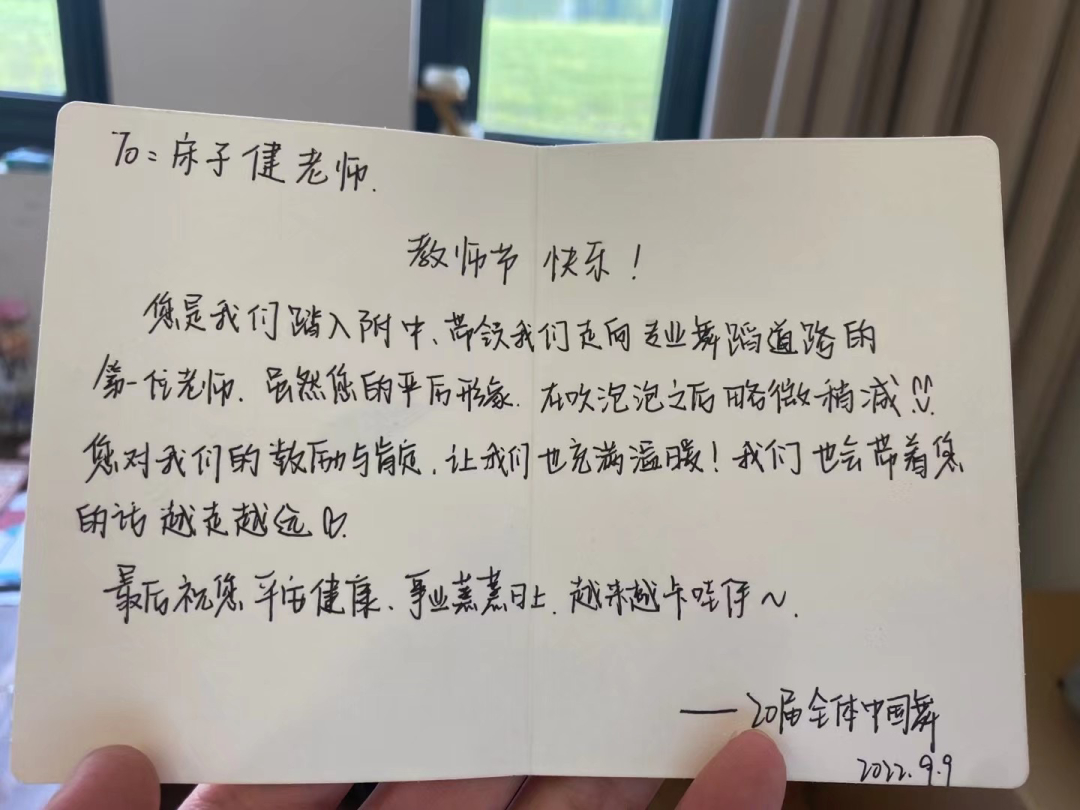 To: 床子健老师.
教师节 快乐!
您是我们踏入附中、带领我们走向专业舞蹈道路的
第一位老师. 虽然您的平后形象. 在吹泡泡之后略微稍减
您对我们的鼓励与肯定, 让我们也充满温暖! 我们也会带着您
的话 越走越远
最后祝您 平安健康、事业蒸蒸日上. 越来越卡哇伊~.
——20届全体中国舞
2022.9.9